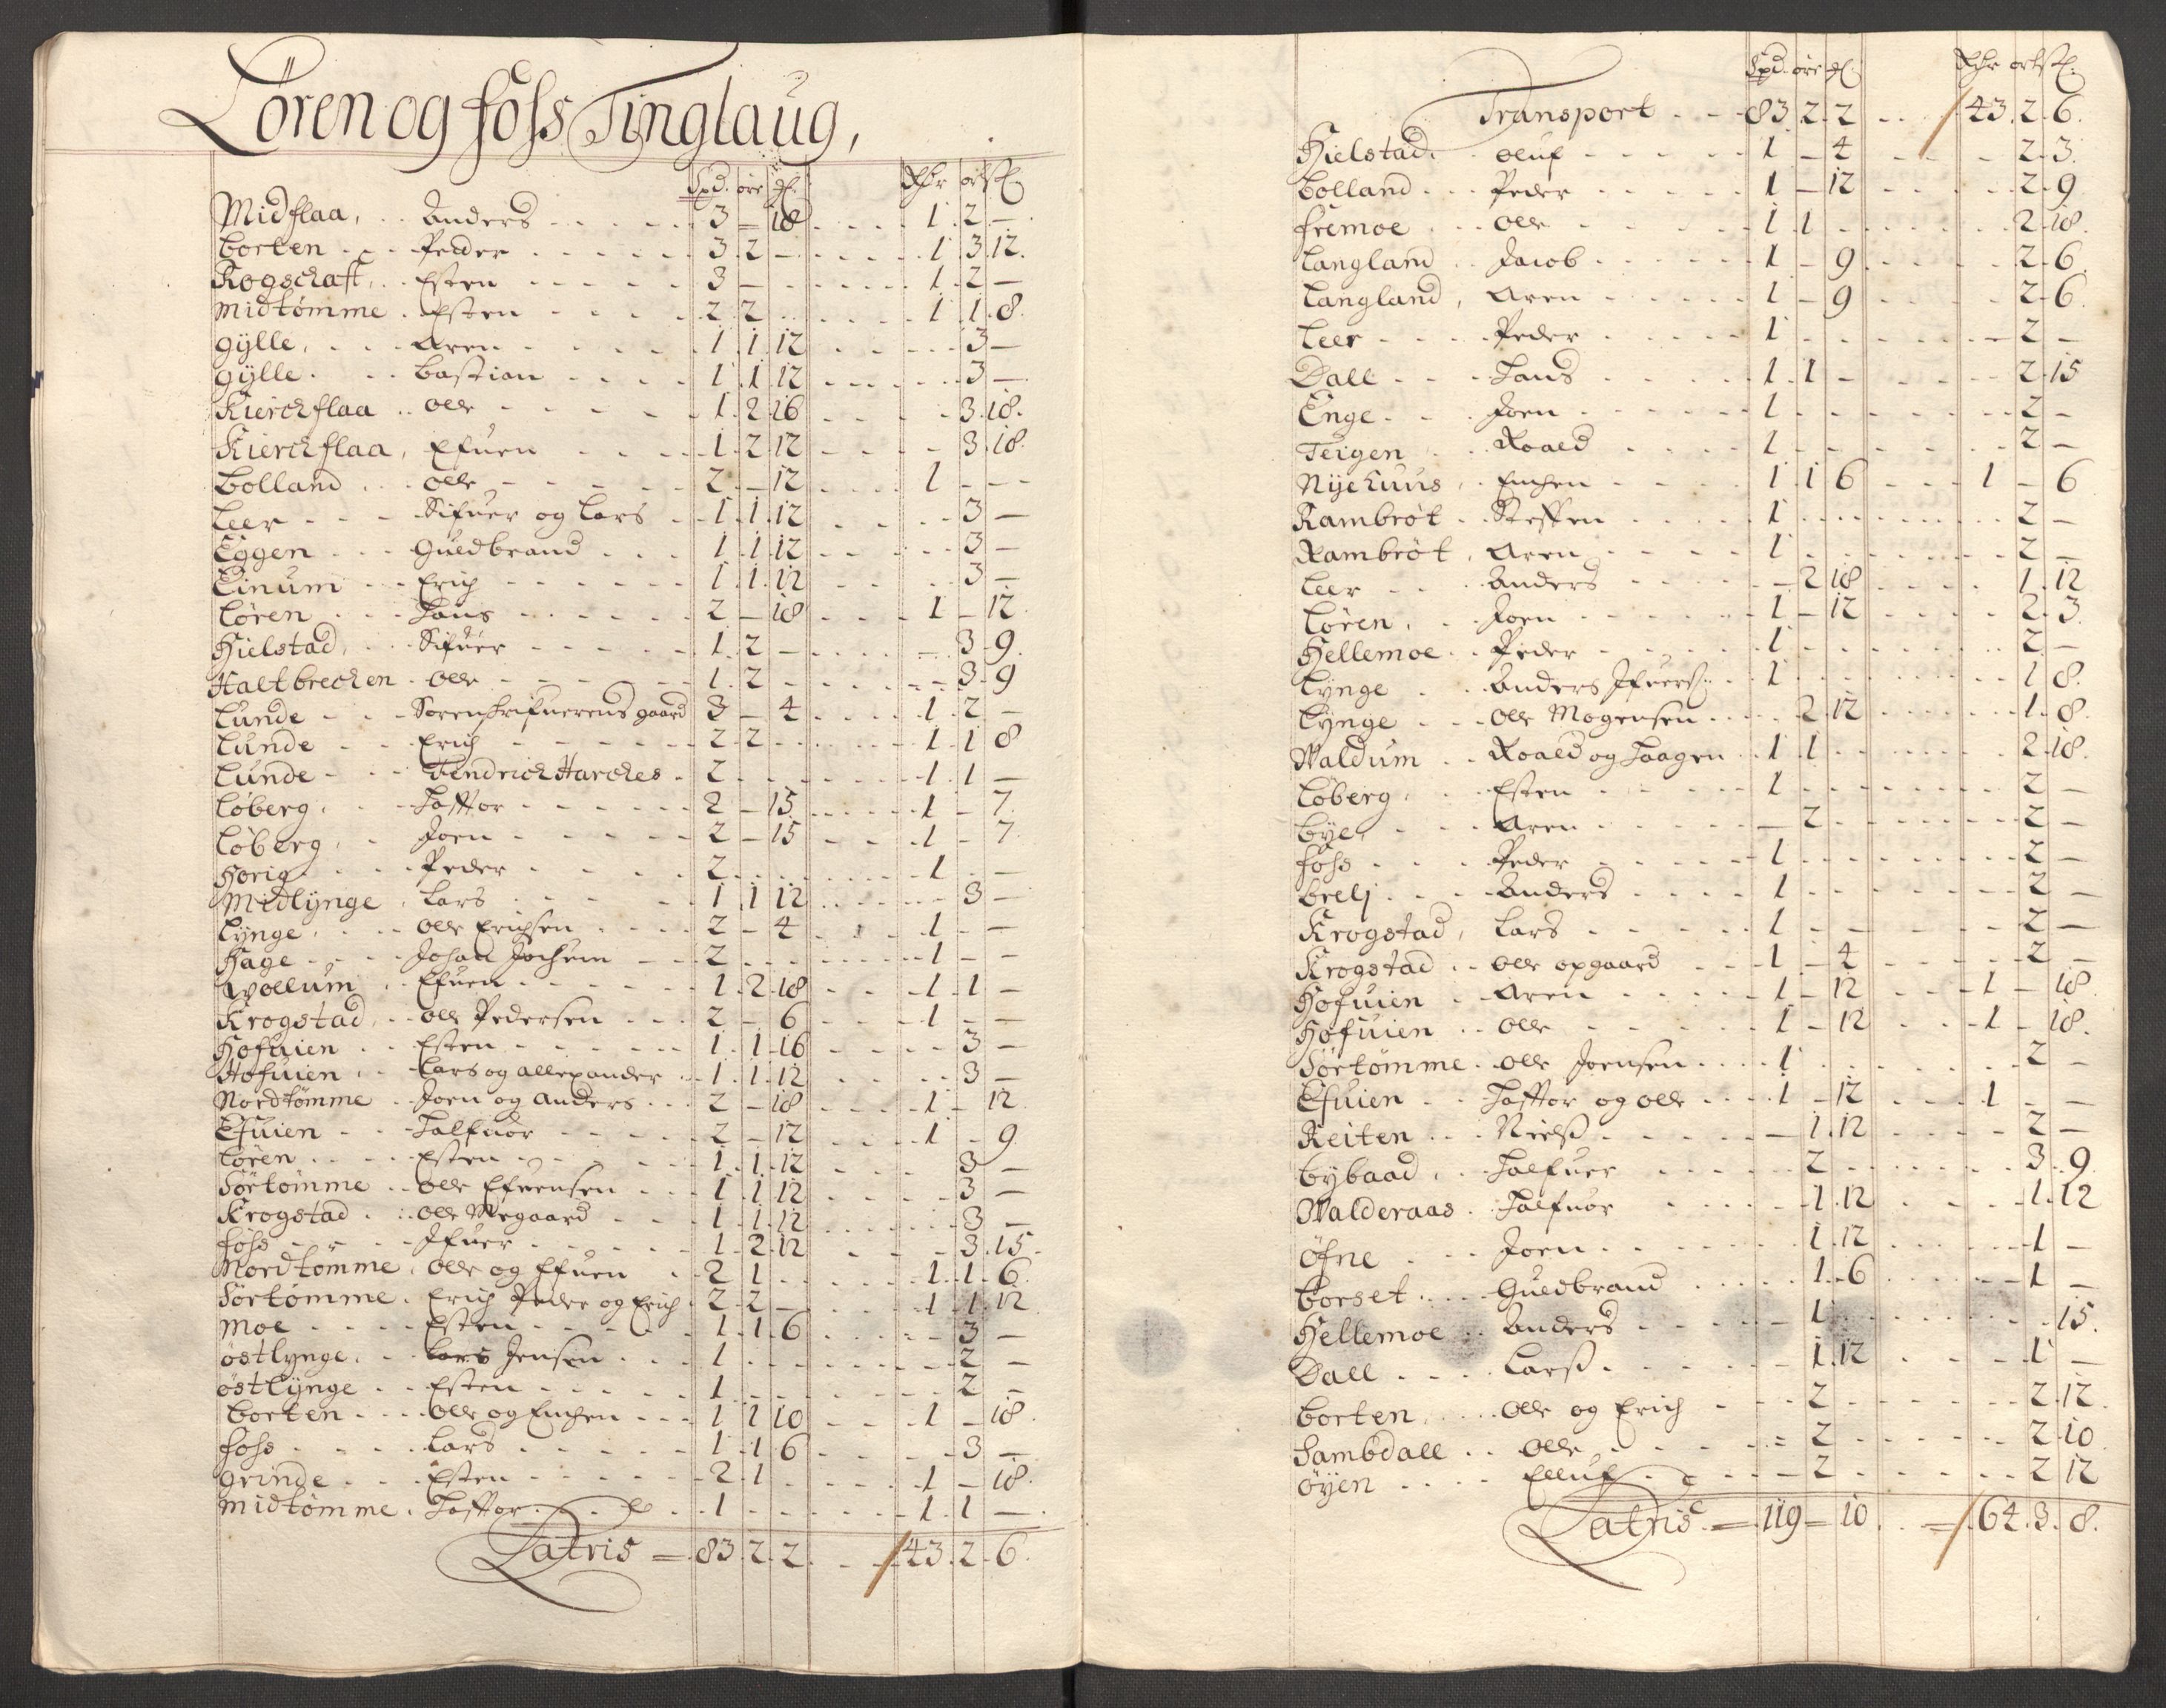 Løren og foss Tinglaug,
Spd. øre . Rdr ort
Midflaa, . . Anders - - - 3 - 18 . . . 1 . 2 . -
borten - - - Peder - - - 3 . 2 - . . . 1 . 3 . 12.
Rogschaft, . . Esten - - - 3 - . . . 1 . 2 -
Midtømme . Esten - - - 2 . 2 . . . 1 . 1 . 8.
gÿlle, . . . Aren - - - 1 . 1 . 12 . . . 3 -
gÿlle . . . bastian - - - 1 . 1 . 12 . . . 3 -
Kierchflaa . . Olle - - - 1 . 2 . 16 . . . 3 . 18.
Kierchflaa, Efuen - - - 1 . 2 . 12 . . . 3 . 18.
bolland . . . Olle - - - 2 . - 12 . . . 1 - - -
leer - - - Sifuer og Lars - 1 . 1 . 12 . . . 3 -
Eggen . . . Guldbrand . . . 1 . 1 . 12 . . . 3 -
Linum - - - Erich - - - 1 . 1 . 12 . . . 3 -
Løren . . . Hans - - - 2 - 18 . . . 1 - 12
Hielstad, . . . Sifuer - - - 1 . 2 - . . . 3 - 9.
Haltbrechen . Olle - - - 1 . 2 - . . . 3 - 9
Lunde - - - Sorenskrifuerens gaard 3 - 4 . . . 1 . 2 -
Lunde - - - Erich - - - 2 . 2 . . . 1 . 1 8
Lunde - - - Hendrich Harckes . 2 . . . 1 . 1 -
Løberg, . . . Haftor - - - 2 - 15 . . . 1 - 7.
Løberg, . . . Joen - - - 2 - 15 . . . 1 - 7
Horig . . . Peder - - - 2 . . . 1 . -
Midlÿnge . Lars . . . 1 . 1 12 . . . 3 -
Lÿnge, . . . Olle Erichsen . . . 2 - 4 . . . 1 - -
Hage - - - Johan Jochim - - 2 . . . 1 - -
Wollum . . Efuen - - - 1 . 2 . 18 . . . 1 . 1 -
Krogstad, . . Olle Pedersen . . . 2 - 6 . . . 1 - -
Hofuien . . Esten - - - 1 . 1 - 16 . . . 3 -
Hofuien . . Lars og allexander . 1 . 1 . 12 . . . 3 -
Nordtømme . Joen og Anders . . 2 - 18 . . . 1 - 12
Efuien - - - Halfuor - - - 2 - 12 . . . 1 - 9
Løren . . . Esten - - - 1 . 1 . 12 . . . 3 -
Sørtømme . . Olle Efuensen . . . 1 . 1 12 . . . 3 -
Krogstad . . Olle Negaard . . . 1 . 1 . 12 . . . 3 -
foss - - - Ifuer - - - 1 - 2 . 12 . . . 3 . 15.
Nordtømme, Olle og Efuen . 2 1 . . . 1 . 1 . 6.
Sørtømme . Erich Peder og Erich . 2 . 2 - . . . 1 . 1 . 12
Moe . . . Esten - - - 1 . 1 . 6 . . . 3 -
østlynge . . Lars Jensen . . . 1 . . . 2 -
østlÿnge . . Esten - - - 1 . . . 2 -
borten . . . Olle og Enchen . . . 1 1 10 . . . 1 - 18.
foss . . . Lars . . . 1 . 1 6 . . . 3 -
grinde . . . Esten - - - 2 . 1 . . . 1 - 18.
Midtømme . Haftor . . . 1 . . . 1 . 1 -
Latris = 83 . 2 . 2 . . . 43 . 2 . 6.
Spd. øre . Rdr ort
Transport . . - 83 . 2 . 2 . . . 43 . 2 . 6.
Hielstad . . Oluf - - - 1 - 4 . . . 2 - 3.
bolland . . . Peder - - - 1 - 12 . . . 2 . 9
fremoe . . . Olle - - - 1 . 1 . . . 2 - 18.
Langland . . Jacob - - - 1 - 9 . . . 2 - 6.
Langland, Aren - - - 1 - 9 . . . 2 - 6.
Leer - - - Peder - - - 1 . . . 2 -
Dall - - - Hans . . . 1 . 1 - . . . 2 - 15
Enge . . . Joen - - - 1 . . . 2 -
Teigen . . . Roald . . . 1 . . . 2 -
Nÿehuus . . Enchen - - - 1 . 1 6 . . . 1 - 6
Rambrøt . . Steffen - - - 1 . . . 2 -
Rambrøt . Aren - - - 1 . . . 2 -
Leer . . . Anders - - - - 2 18 . . . 1 . 12
Løren, . . . Joen - - - 1 - 12 . . . 2 . 3.
Hellemoe . . Peder - - - 1 . . . 2 -
Lÿnge . . . Anders Ifuers: . . 1 . . . 1 8.
Lÿnge - - - Olle Mogensen . . . 2 . 12 . . . 1 . 8
Waldum . . Roald og Haagen . . 1 1 . . . 2 - 18.
Løberg . . . Esten - - - 1 . . . 2 -
bÿe, . . . Aren - - - - 2 . . . 2 -
foss . . . Peder - - - 1 . . . 2 -
brelj . . . Anders . . . 1 . . . 2 -
Krogstad, Lars . . . 1 . . . 2 -
Krogstad . . Olle opgaard . . . 1 - 4 . . . 2 -
Hofuien . . Aren . . . 1 - 12 . . . 1 - 18.
Hofuien . . Olle - - - 1 - 12 . . . 1 - 18.
Sørtømme . Olle Joensen . . . 1 . . . 2 -
Efuien . . . Haftor og Olle . . . 1 - 12 . . . 1 - -
Reiten . . . Nielß - - - - 1 . 12 . . . 2 -
bÿbaad, . . Halfuer - - - 2 . . . 3 . 9.
Walderaas . Halfuor - - - 1 . 12 . . . 1 . 12
Øfne . . . Joen . . . 1 . 12 . . . 1 -
borset . . . Guldbrand . . . 1 - 6 . . . 1 -
Hellemoe . . Anders - - - 1 . . . 15.
Dall . . . Larß . . . 1 . 12 . . . 1 -
borten, . . . Olle og Erich - - - 2 . . . 2 . 12.
Sambdall . . Olle - - - = 2 . . . 2 10
øÿen . . . Elluf . . . - 2 . . . 2 12
Latris = 119 - 10 . . . = 64 . 3 . 8.